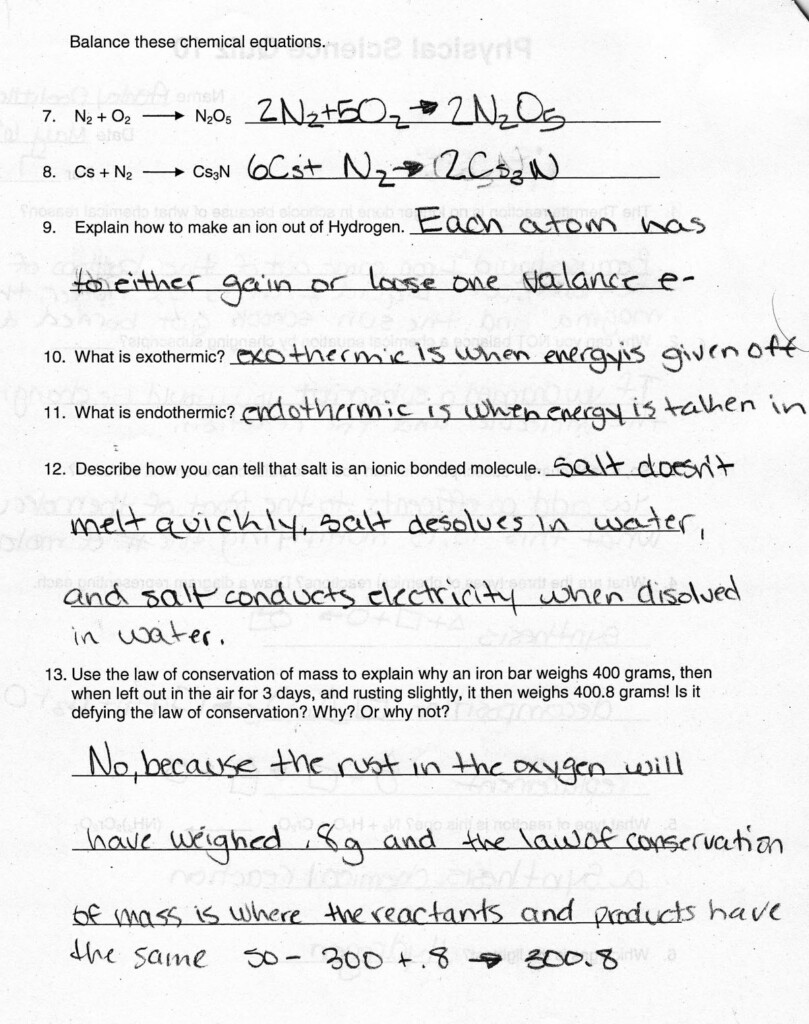 Balance these chemical equations.
7. N₂ + O₂ ⟶ N₂O₅ 2N₂+5O₂ → 2N₂O₅
8. Cs + N₂ ⟶ Cs₃N 6Cs+ N₂→ 2Cs₃N
9. Explain how to make an ion out of Hydrogen. Each atom has
to either gain or loose one valance e-
10. What is exothermic? exothermic is when energy is given off
11. What is endothermic? endothermic is when energy is takhen in
12. Describe how you can tell that salt is an ionic bonded molecule. salt doesn't
melt quickly, salt desolves in water,
and salt conducts electricity when disolved
in water.
13. Use the law of conservation of mass to explain why an iron bar weighs 400 grams, then
when left out in the air for 3 days, and rusting slightly, it then weighs 400.8 grams! Is it
defying the law of conservation? Why? Or why not?
No, because the rust in the oxygen will
have weighed .8g and the law of conservation
of mass is where the reactants and products have
the same so - 300 + .8 → 300.8